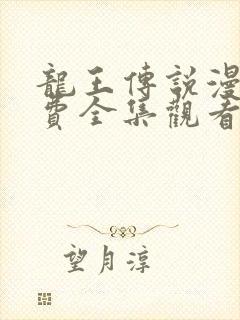 龍王傳說漫
費全集觀看
望月淳